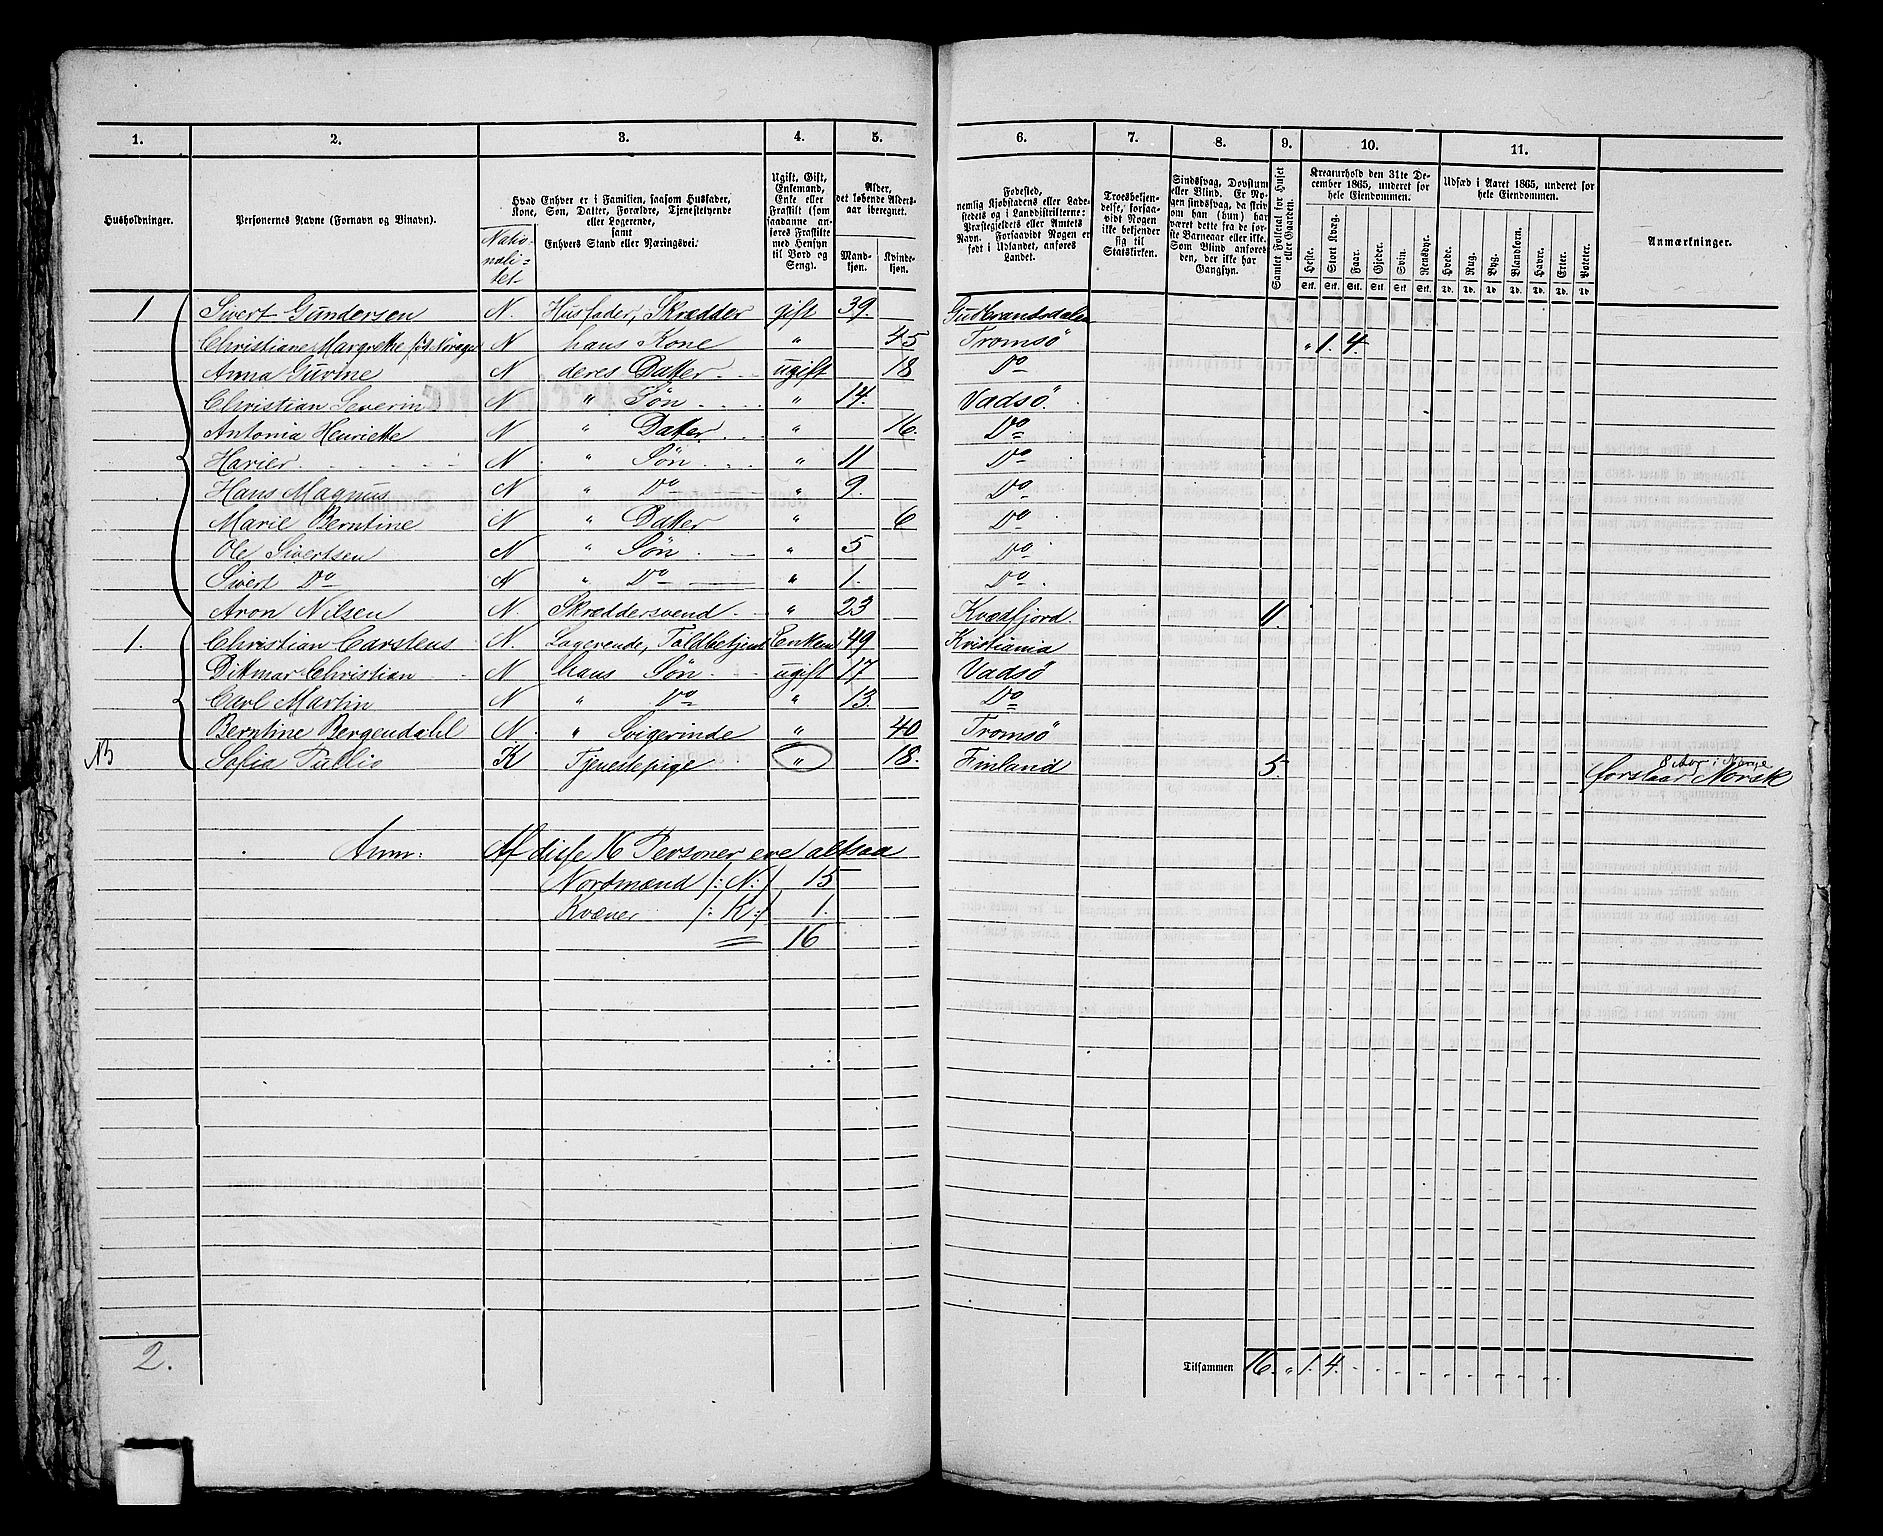 1. 2. 3. 4. 5. 6. 7. 8. 9. 10. 11.
Husholdninger.
Personernes Navne (Fornavn og Binavn).
Hvad Enhver er i Familien, saasom Husfader, Kone, Søn, Datter, Forældre, Tjenestetyende eller Logerende, samt Enhvers Stand eller Næringsvei.
Natio-
nali-
tet.
Ugift, Gift, Enkemand, Enke eller Fraskilt (som saadanne anføres Fraskilte med Hensyn til Bord og Seng).
Alder, det løbende Aldersaar iberegnet.
Mandkjøn. Kvindekjøn.
Fødested, nemlig Kjøbstadens eller Ladestedets og i Landdistrikterne: Præstegjeldets eller Amtets Navn. Forsaavidt Nogen er født i Udlandet, anføres Landet.
Troesbekjendelse, forsaavidt Nogen ikke bekjender sig til Statskirken.
Sindssvag, Døvstum eller Blind. Er Nogen sindssvag, da skrives om han (hun) har været dette fra de første Barneaar eller ikke. Som Blind anføres den, der ikke har Gangsyn.
Samlet Folketal for Huset eller Gaarden.
Kreaturhold den 31te December 1865, underet for hele Eiendommen.
Heste. Stort Kvæg. Faar. Gjeder. Svin. Rensdyr.
Stk. Stk. Stk. Stk. Stk. Stk.
Udsæd i Aaret 1865, underet for hele Eiendommen.
Hvede. Rug. Byg. Blandkorn. Havre. Erter. Poteter.
Td. Td. Td. Td. Td. Td. Td.
Anmærkninger.
1 Sivert Gundersen N. Husfader, Skrædder gift 39. Gudbrandsdalen
Christiane Margrethe N hans Kone " 45 Tromsø " 1. 4.
Anna Gurine N deres Datter ugift 18 Do
Christian Severin N " Søn " 14. Vadsø.
Antonia Henriette N " Datter " 16. Do
Harier N " Søn " 11 Do
Hans Magnus N " Do " 9. Do
Marie Berntine N " Datter " 6 Do
Ole Sivertsen N " Søn " 5 Do
Sivert Do N " Do " 1. Do
Aron Nilsen N. Skræddersvend " 23 Kvædfjord 11
1. Christian Carstens N. Logerende, Toldbetjent Enkem 49 Kristiania
Dittmar Christian N hans Søn ugift 17 Vadsø
Carl Martin N " Do " 13. Do
Berntine Bergendahl N. " Svigerinde " 40 Tromsø
NB Sofia Pullis K Tjenestepige " 18. Finland 5 8 Aar i Norge
forstaar Norsk
Anm: Af disse 16 Personer ere altsaa
Nordmænd /: N:/ 15
Kvæner /: K:/ 1.
16
2.
Tilsammen 16. " 1. 4.